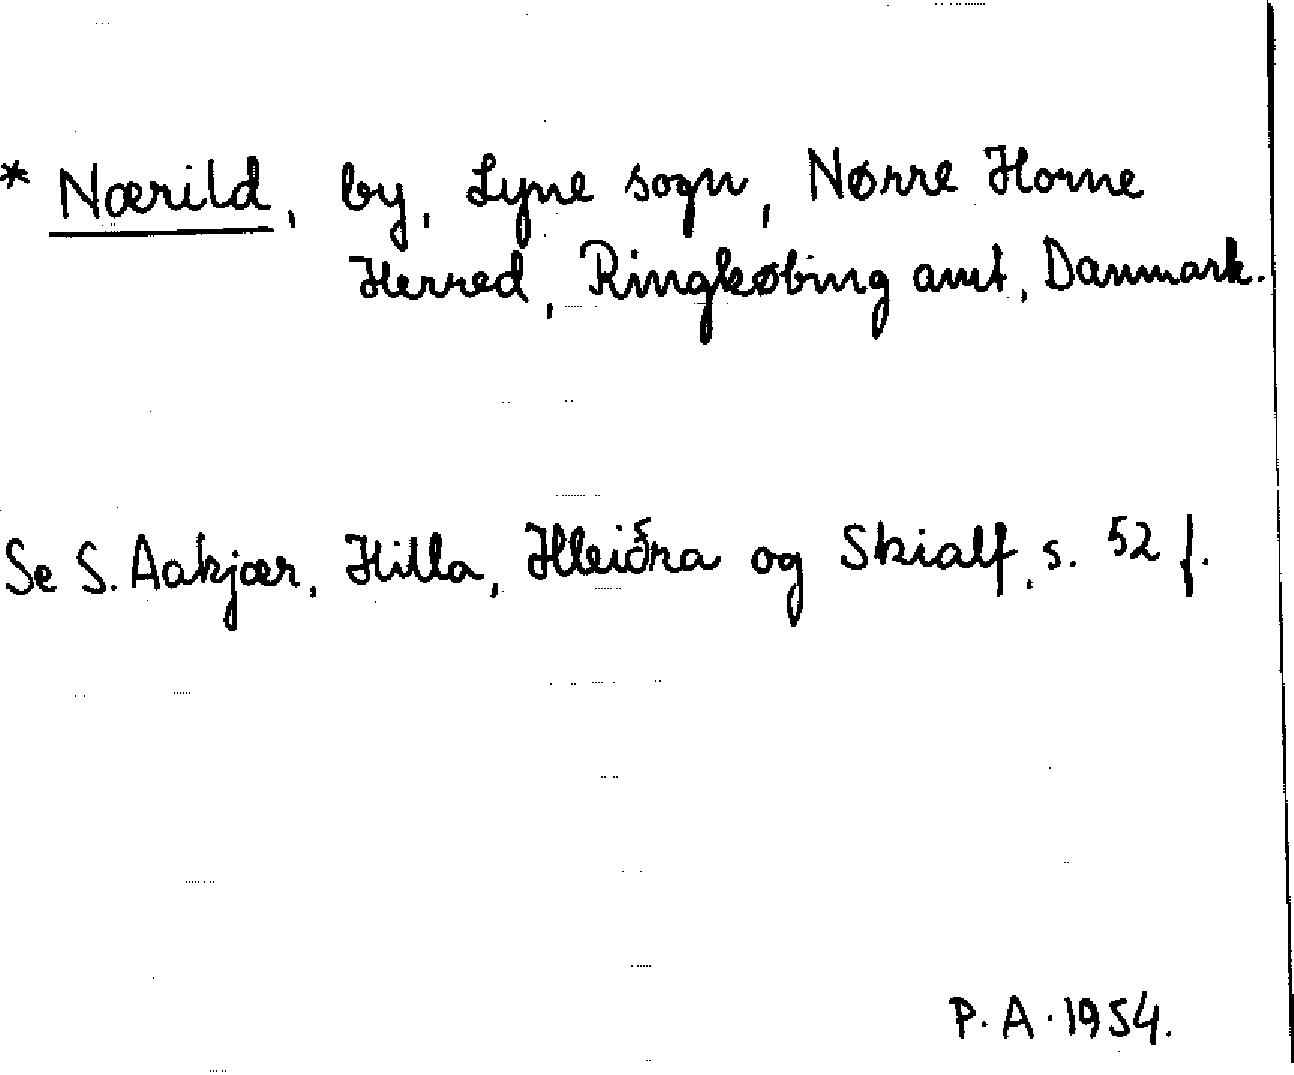 * Nærild, by, Lyne sogn, Nørre Horne
Herred, Ringkøbing amt, Danmark.
Se S. Aakjær, Hilla, Hleiðra og Skialf, s. 52 f.
P. A. 1954.